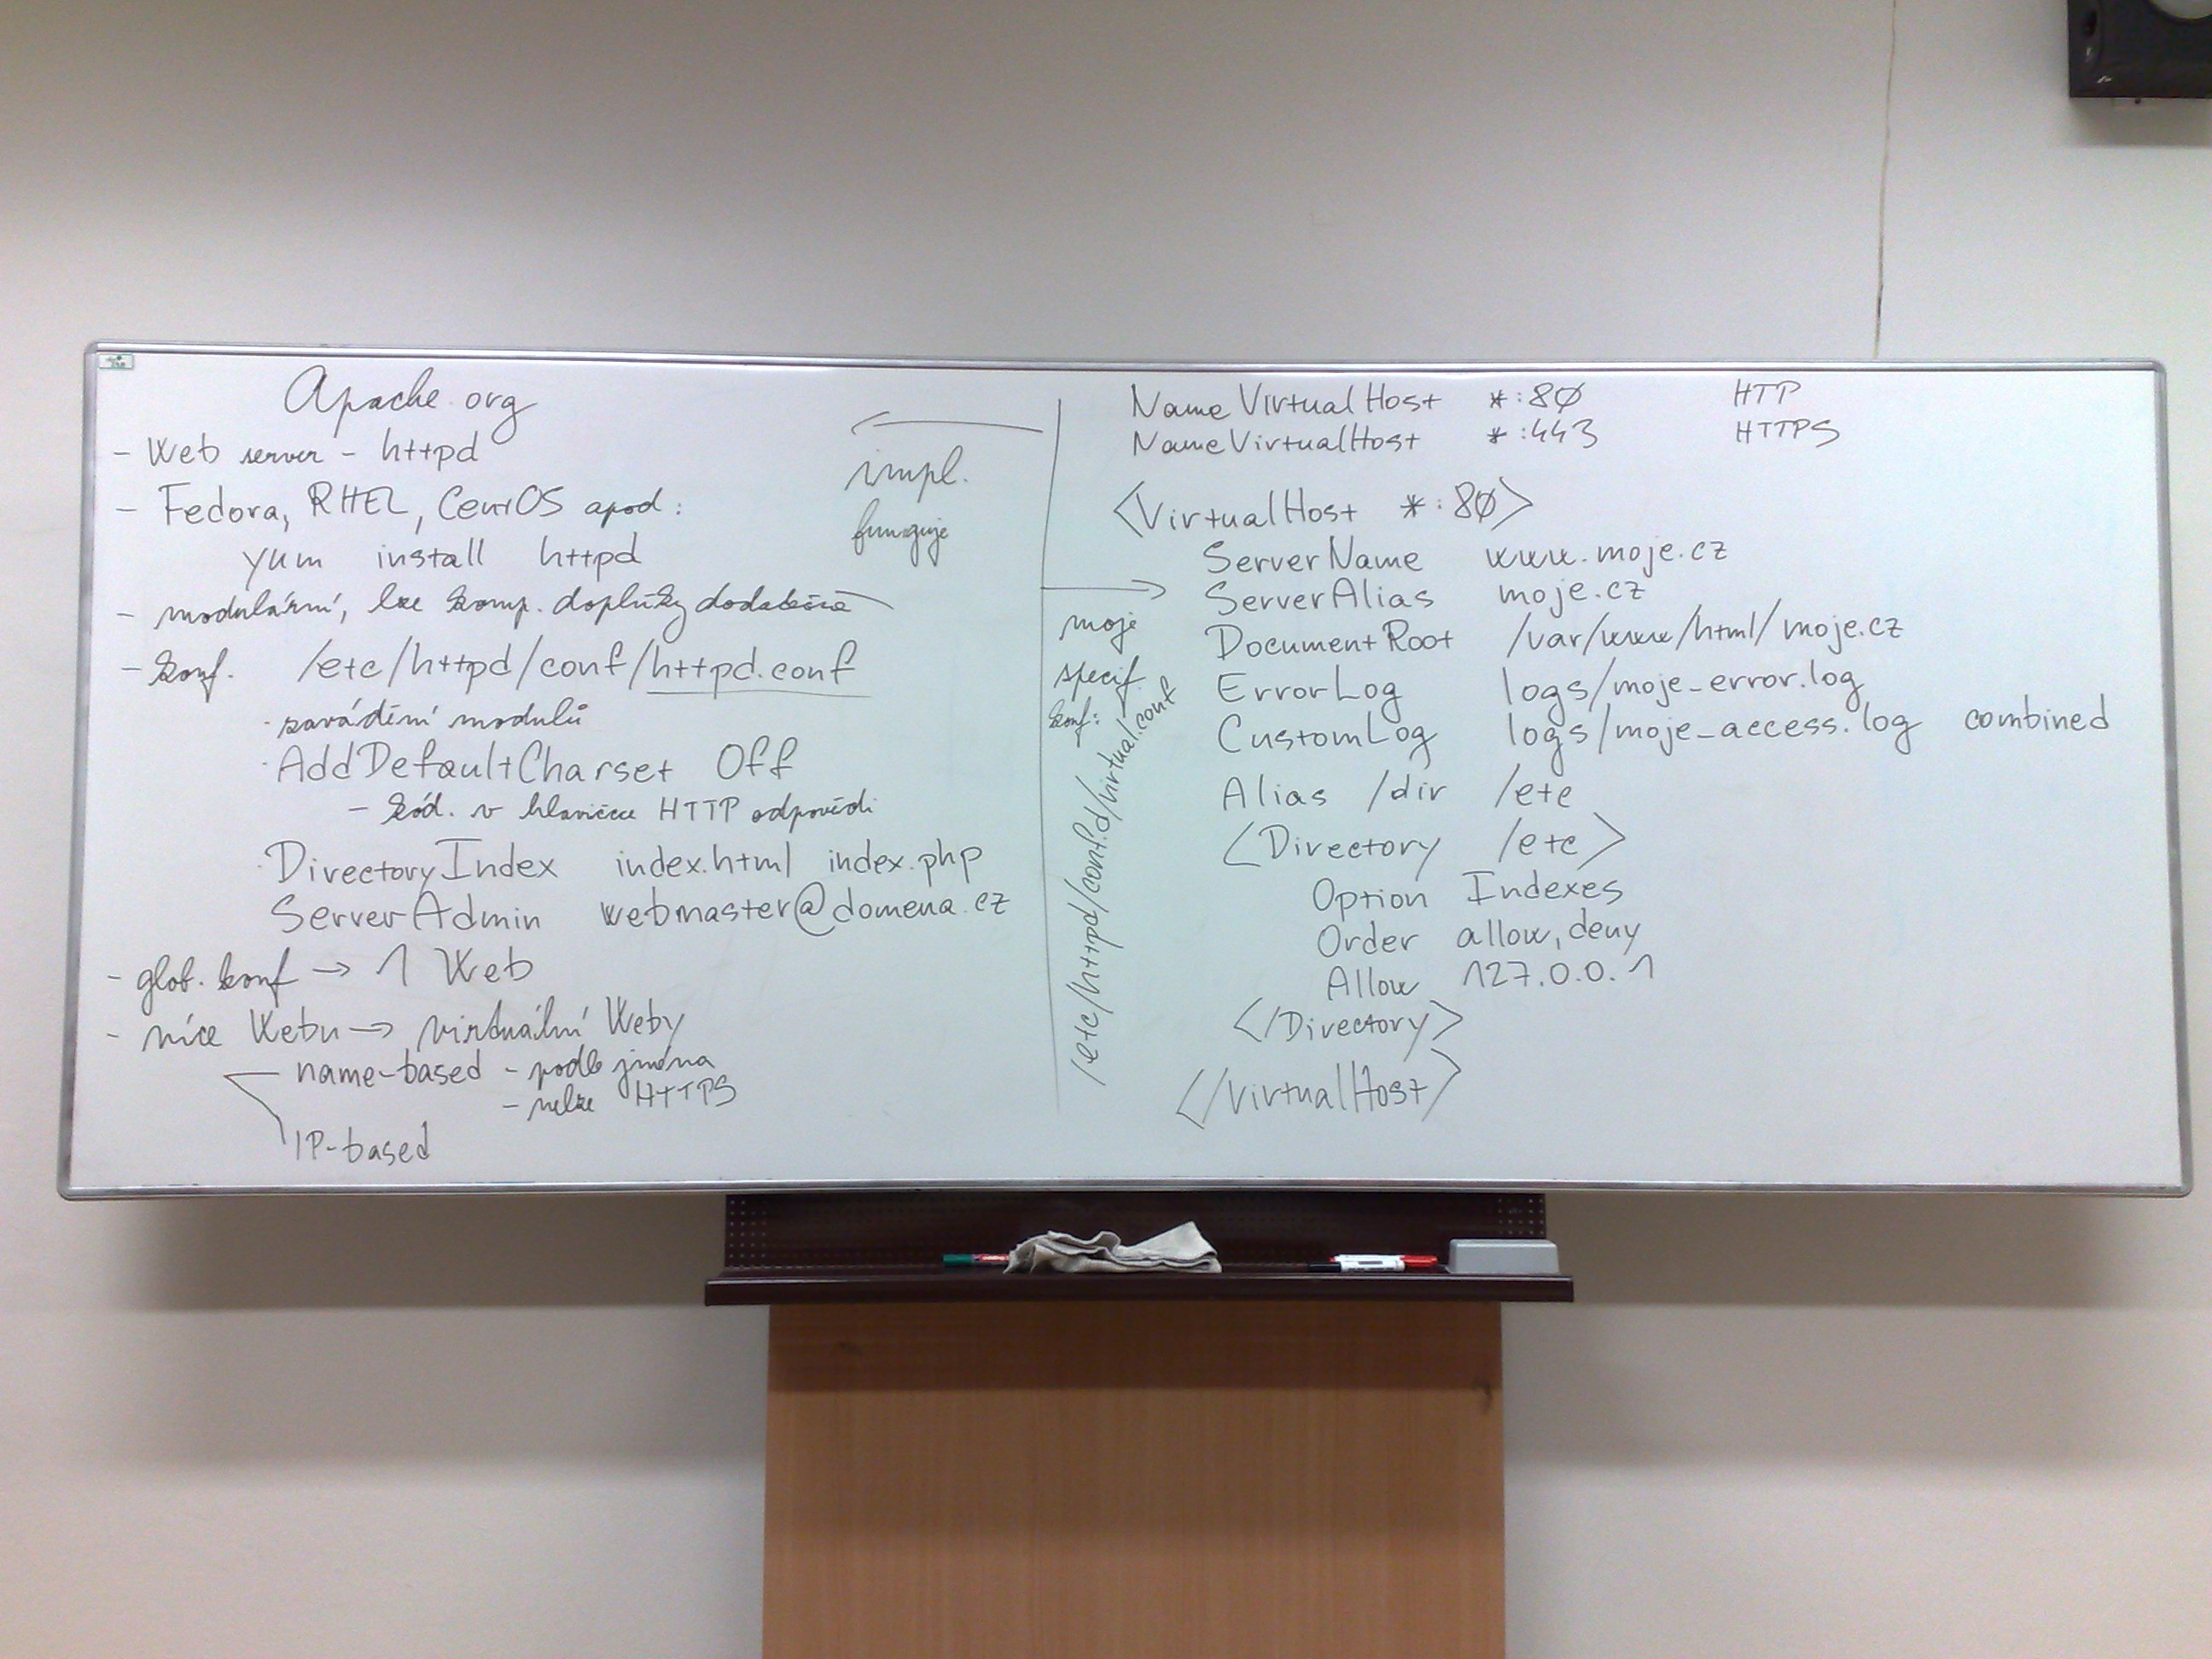 Apache.org
- Web server - httpd
- Fedora, RHEL, CentOS apod:
yum install httpd
- modulární, lze komp. doplňky dodatečně
- konf. /etc/httpd/conf/httpd.conf
· zavádění modulů
· AddDefaultCharset Off
- kód. v hlavičce HTTP odpovědi
· DirectoryIndex index.html index.php
ServerAdmin webmaster@domena.cz
- glob. konf → 1 Web
- více Webů → virtuální Weby
name-based - podle jména
- nelze HTTPS
IP-based
impl.
funguje
moje
specif.
konf:
/etc/httpd/conf.d/virtual.conf
NameVirtualHost *:80 HTP
NameVirtualHost *:443 HTTPS
<VirtualHost *:80>
ServerName www.moje.cz
ServerAlias moje.cz
DocumentRoot /var/www/html/moje.cz
ErrorLog logs/moje_error.log
CustomLog logs/moje_access.log combined
Alias /dir /etc
<Directory /etc>
Option Indexes
Order allow,deny
Allow 127.0.0.1
</Directory>
</VirtualHost>